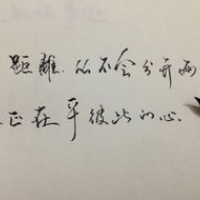 距離.从不会分开两
正在乎彼此的心.